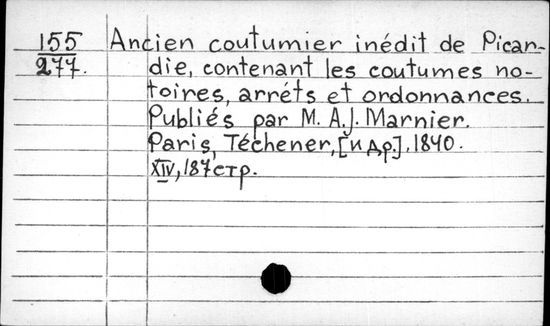 155 Ancien coutumier inédit de Pican-
277. die, contenant les coutumes no-
toires, arréts et ordonnances.
Publiés par M. A.J. Marnier.
Paris, Téchener, [и др.], 1840.
XIV, 187 стр.